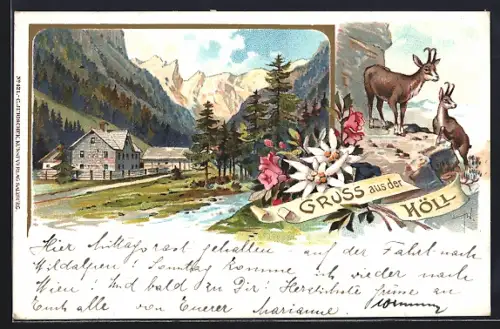 No 421.-C. JURISCHEK, KUNSTVERLAG, SALZBURG.
GRUSS aus der
HÖLL.
Hier Mittagsrast gehalten auf der Fahrt nach
Wildalpen! Sonntag komme ich wieder nach
Wien! Und bald zu Dir! Herzlichste Grüsse an
Euch alle von Euerer Marianne.